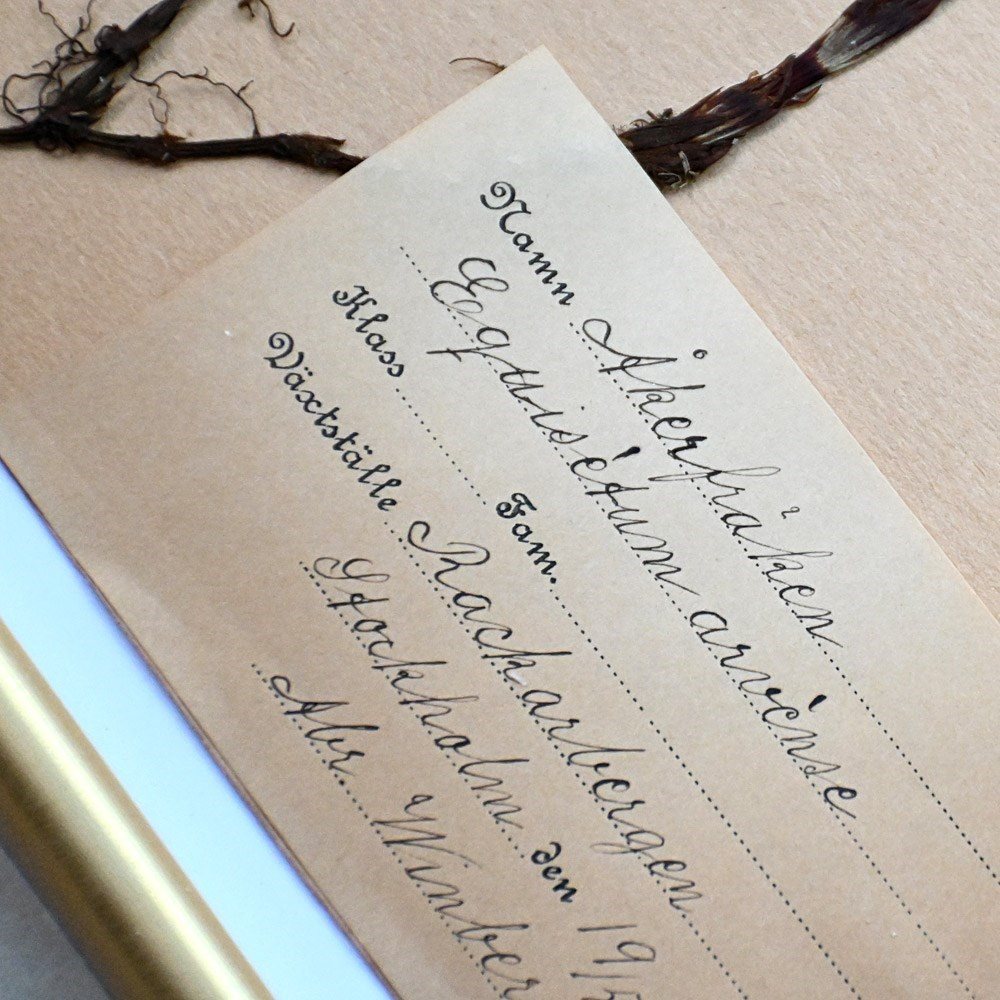 Namn Åkerfräken
Equisetum arvense
Klass Fam.
Växtställe Rackarbergen
Stockholm den 19/5
Abr. Winber